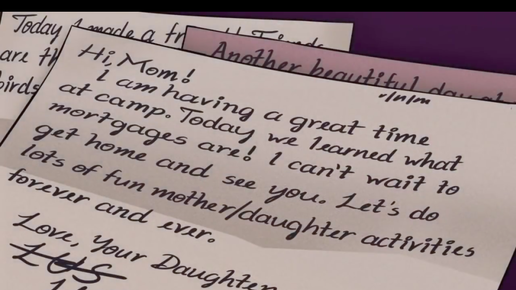 Today I made a
are
birds
Another beautiful
Hi, Mom!
I am having a great time
at camp. Today we learned what
mortgages are! I can't wait to
get home and see you. Let's do
lots of fun mother/daughter activities
forever and ever.
Love, Your Daughter